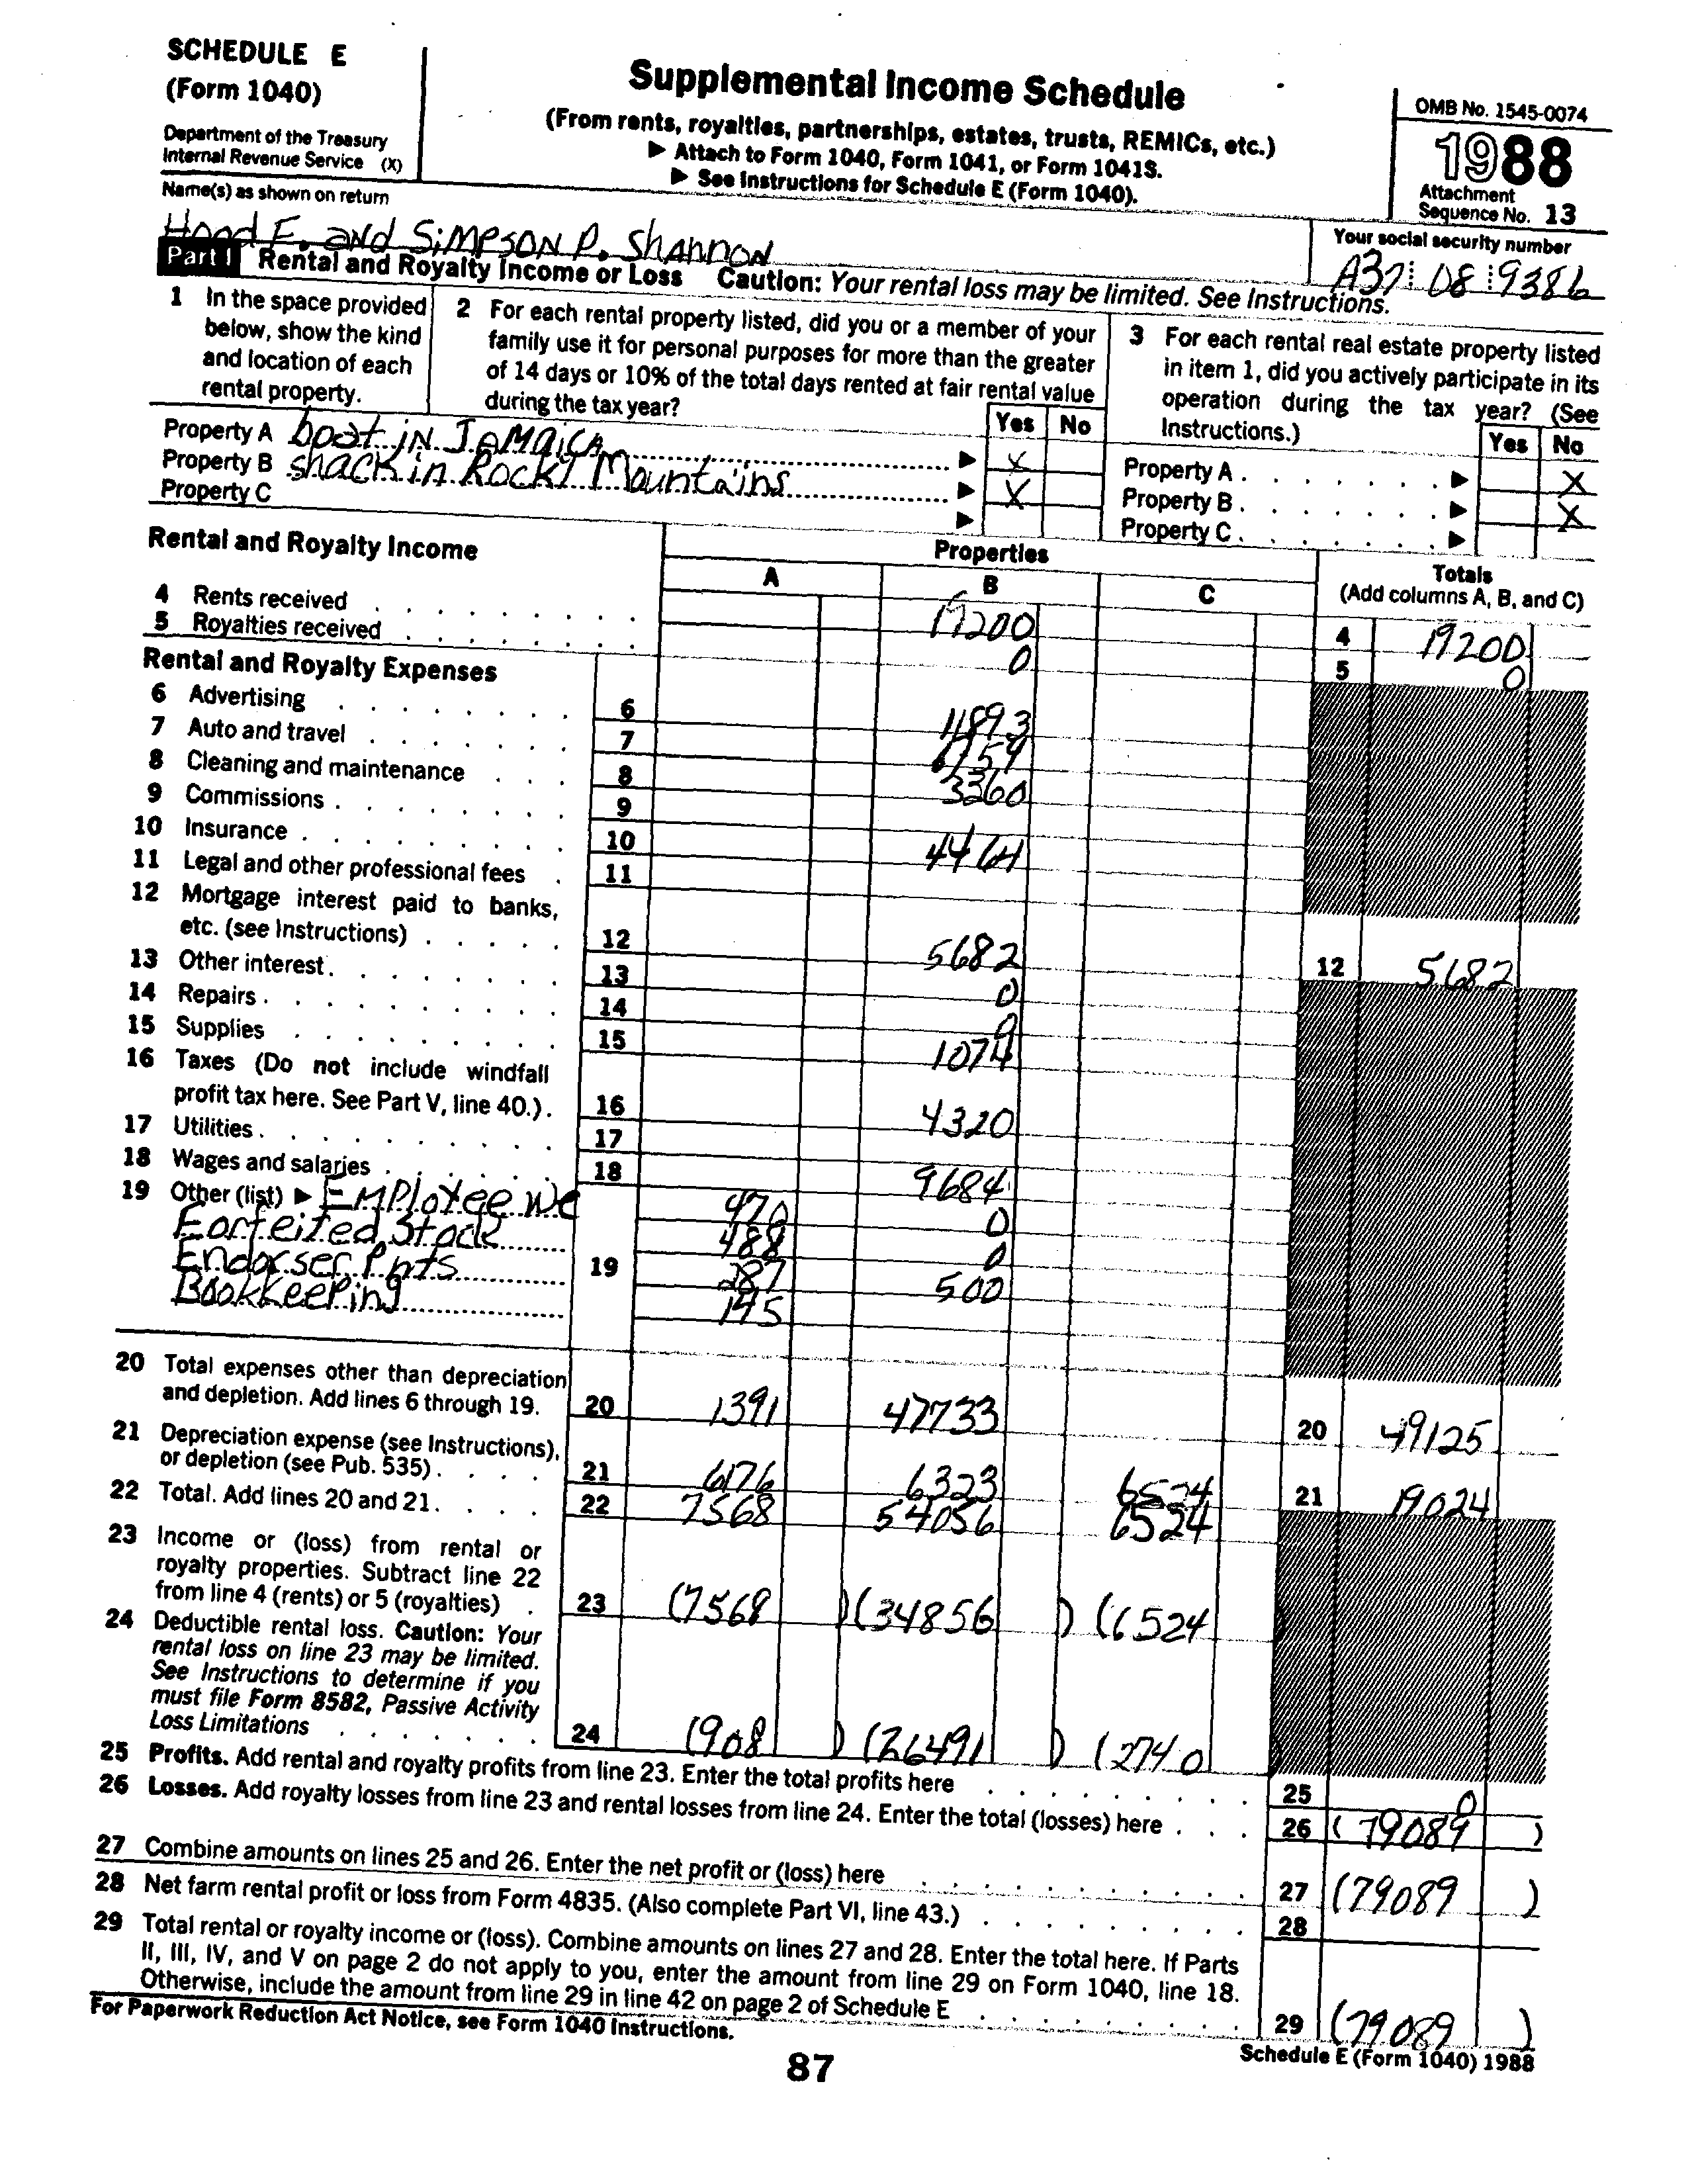 SCHEDULE E
(Form 1040)
Department of the Treasury
Internal Revenue Service (X)
Supplemental Income Schedule
(From rents, royalties, partnerships, estates, trusts, REMICs, etc.)
▶ Attach to Form 1040, Form 1041, or Form 1041S.
▶ See Instructions for Schedule E (Form 1040).
OMB No. 1545-0074
1988
Attachment
Sequence No. 13
Name(s) as shown on return
Hood F. and Simpson P. Shannon
Your social security number
A37 08 9386
Part I Rental and Royalty Income or Loss Caution: Your rental loss may be limited. See Instructions.
1 In the space provided
below, show the kind
and location of each
rental property.
2 For each rental property listed, did you or a member of your
family use it for personal purposes for more than the greater
of 14 days or 10% of the total days rented at fair rental value
during the tax year?
Yes No
3 For each rental real estate property listed
in item 1, did you actively participate in its
operation during the tax year? (See
Instructions.)
Yes No
Property A boat in Jamaica ▶ X
Property B shack in Rocky Mountains ▶ X
Property C ▶
Property A . . . . . . . ▶ X
Property B . . . . . . . ▶ X
Property C . . . . . . . ▶
Rental and Royalty Income
Properties
A B C
Totals
(Add columns A, B, and C)
4 Rents received 19200 4 19200
5 Royalties received 0 5 0
Rental and Royalty Expenses
6 Advertising 6 11893
7 Auto and travel 7 6759
8 Cleaning and maintenance 8 3360
9 Commissions 9
10 Insurance 10 4464
11 Legal and other professional fees 11
12 Mortgage interest paid to banks,
etc. (see Instructions) 12 5682 12 5682
13 Other interest 13 0
14 Repairs 14 0
15 Supplies 15 1074
16 Taxes (Do not include windfall
profit tax here. See Part V, line 40.) 16 4320
17 Utilities 17
18 Wages and salaries 18 9684
19 Other (list) ▶ Employee We 470 0
Forfeited Stock 488 0
Endorser Pmts 19 287 500
Bookkeeping 145
20 Total expenses other than depreciation
and depletion. Add lines 6 through 19. 20 1391 47733 20 49125
21 Depreciation expense (see Instructions),
or depletion (see Pub. 535) 21 6176 6323 6524 21 19024
22 Total. Add lines 20 and 21 22 7568 54056 6524
23 Income or (loss) from rental or
royalty properties. Subtract line 22
from line 4 (rents) or 5 (royalties) 23 (7568 ) (34856 ) (6524
24 Deductible rental loss. Caution: Your
rental loss on line 23 may be limited.
See Instructions to determine if you
must file Form 8582, Passive Activity
Loss Limitations 24 (908 ) (26491 ) (2740 )
25 Profits. Add rental and royalty profits from line 23. Enter the total profits here 25 0
26 Losses. Add royalty losses from line 23 and rental losses from line 24. Enter the total (losses) here 26 ( 79089 )
27 Combine amounts on lines 25 and 26. Enter the net profit or (loss) here 27 (79089 )
28 Net farm rental profit or loss from Form 4835. (Also complete Part VI, line 43.) 28
29 Total rental or royalty income or (loss). Combine amounts on lines 27 and 28. Enter the total here. If Parts
II, III, IV, and V on page 2 do not apply to you, enter the amount from line 29 on Form 1040, line 18.
Otherwise, include the amount from line 29 in line 42 on page 2 of Schedule E 29 (79089 )
For Paperwork Reduction Act Notice, see Form 1040 Instructions.
Schedule E (Form 1040) 1988
87